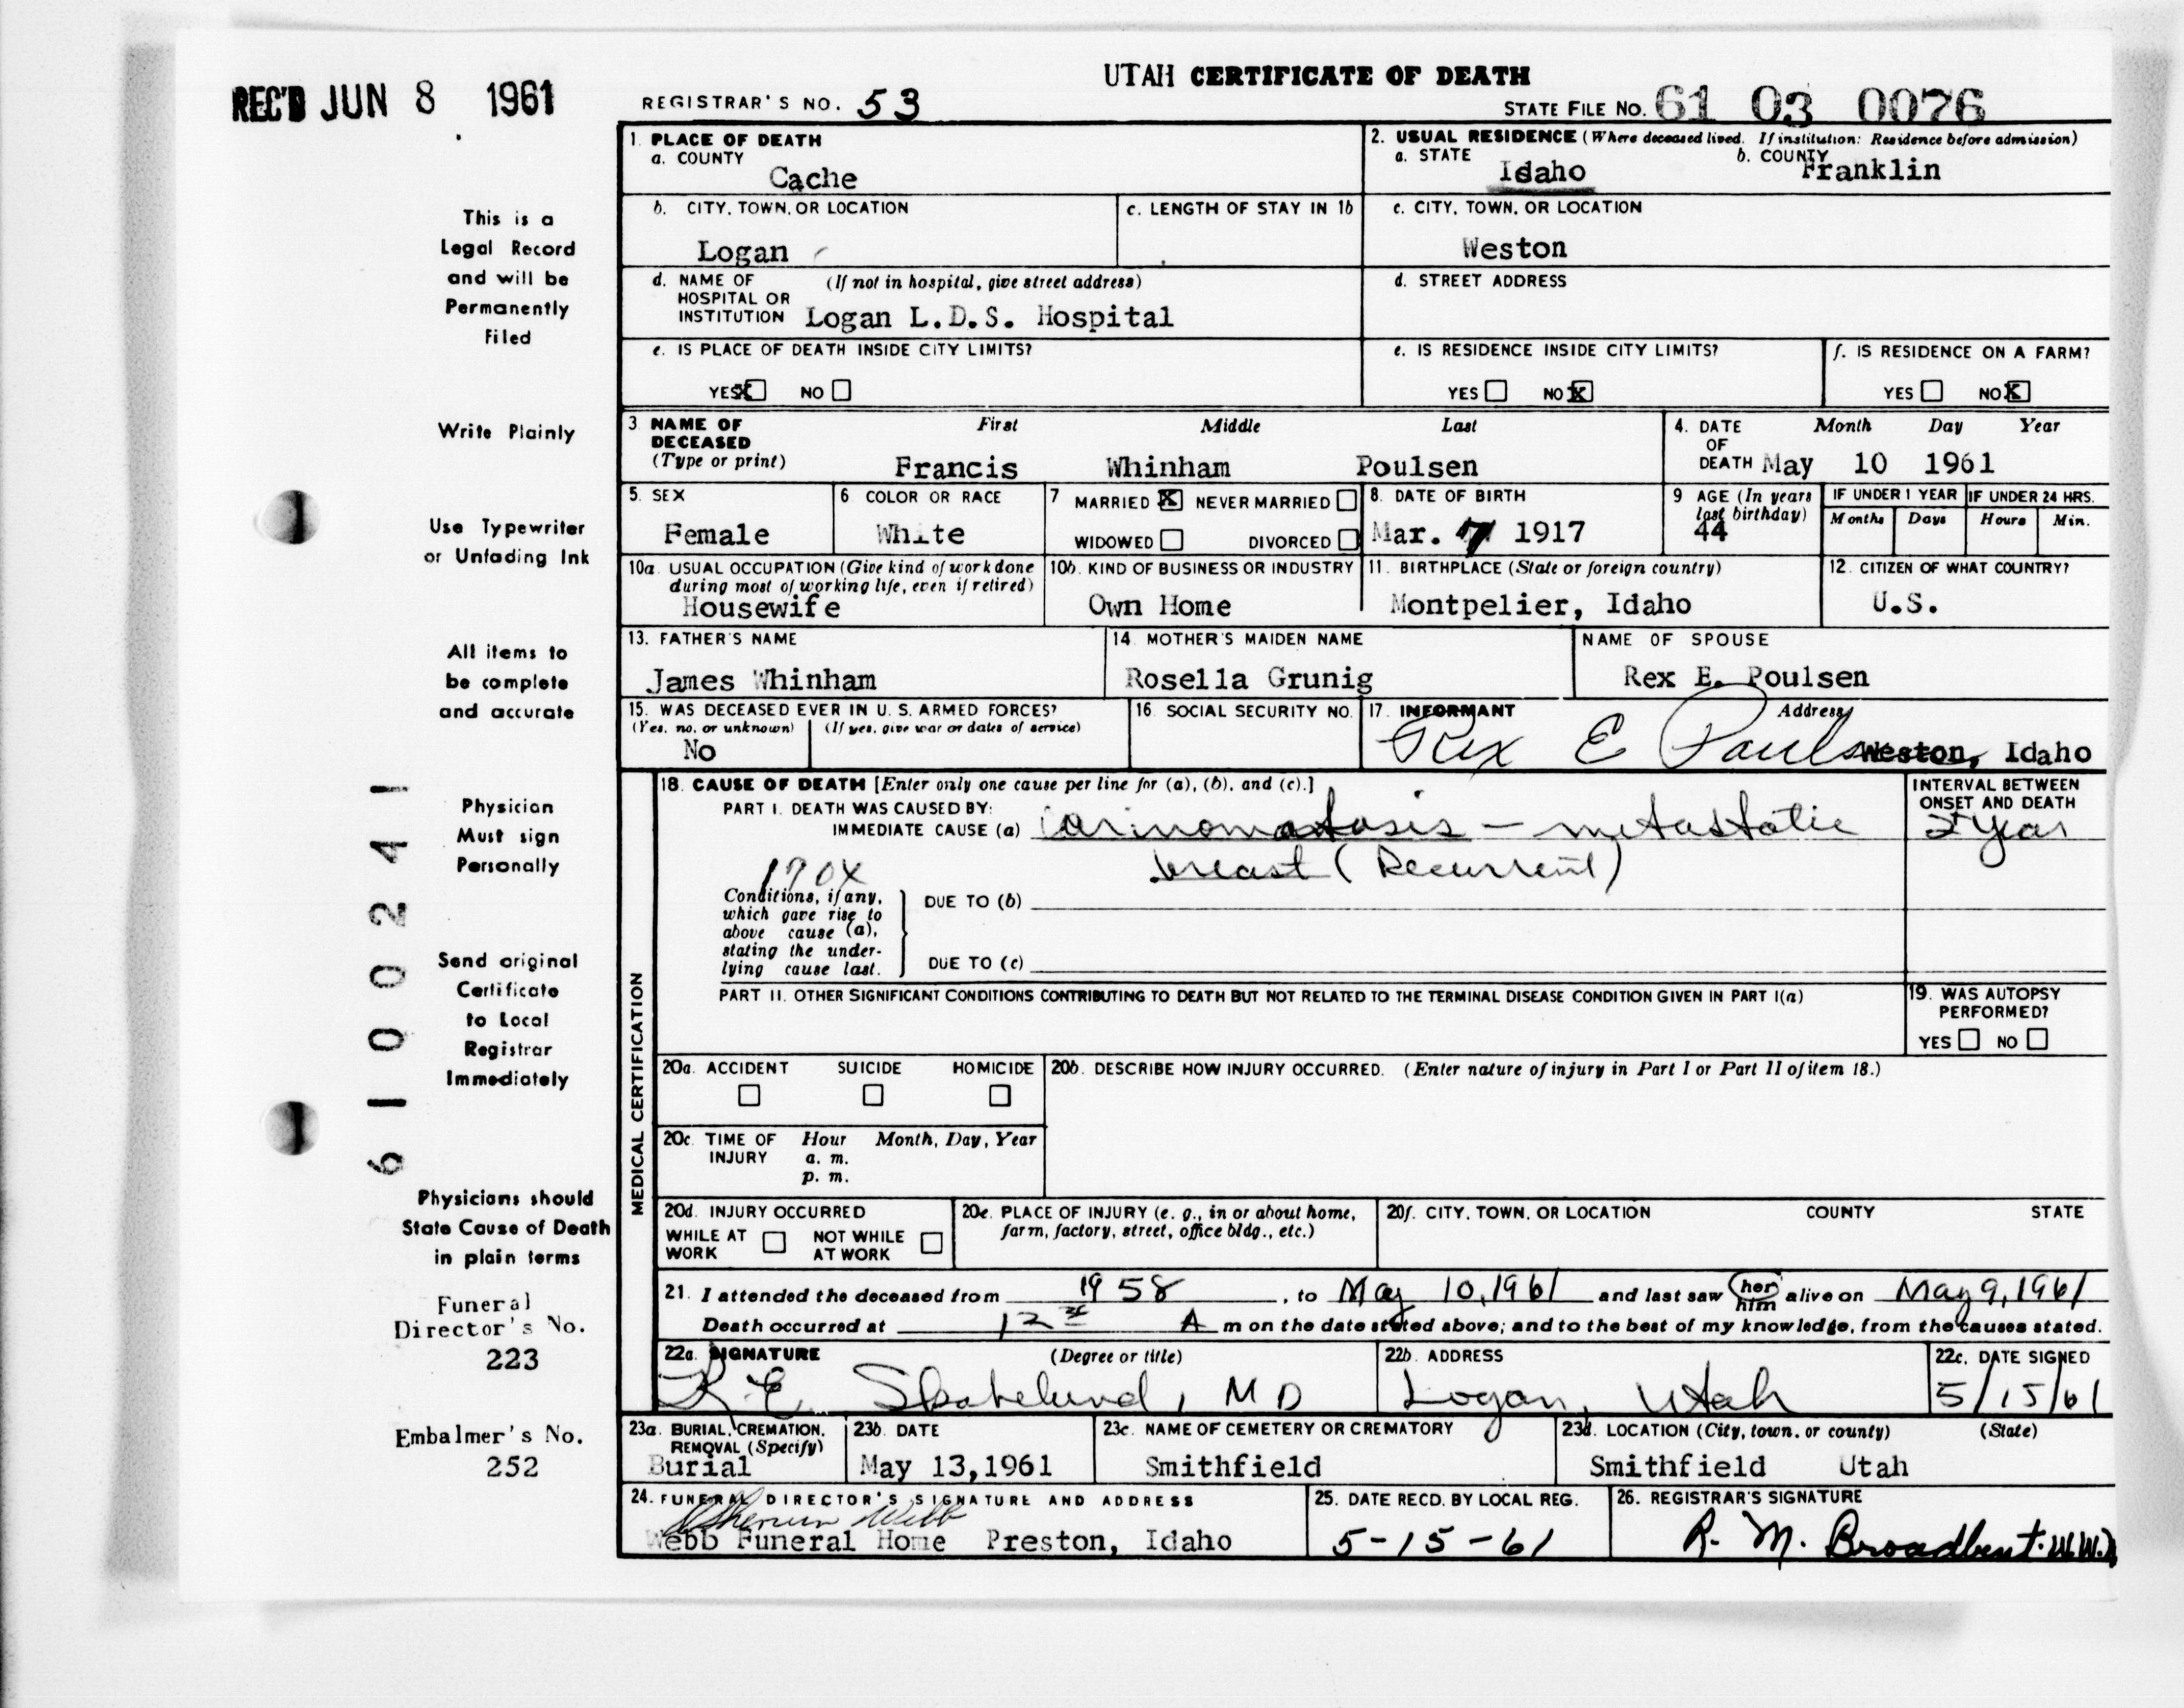 UTAH CERTIFICATE OF DEATH
REC'D JUN 8 1961
REGISTRAR'S NO. 53
STATE FILE NO. 61 03 0076
This is a
Legal Record
and will be
Permanently
Filed
Write Plainly
Use Typewriter
or Unfading Ink
All items to
be complete
and accurate
Physician
Must sign
Personally
Send original
Certificate
to Local
Registrar
Immediately
Physicians should
State Cause of Death
in plain terms
Funeral
Director's No.
223
Embalmer's No.
252
61002411
1. PLACE OF DEATH
a. COUNTY
Cache
2. USUAL RESIDENCE (Where deceased lived. If institution: Residence before admission)
a. STATE Idaho
b. COUNTY Franklin
b. CITY, TOWN, OR LOCATION
Logan
c. LENGTH OF STAY IN 1b
c. CITY, TOWN, OR LOCATION
Weston
d. NAME OF (If not in hospital, give street address)
HOSPITAL OR
INSTITUTION Logan L.D.S. Hospital
d. STREET ADDRESS
e. IS PLACE OF DEATH INSIDE CITY LIMITS?
YES X NO
e. IS RESIDENCE INSIDE CITY LIMITS?
YES NO X
f. IS RESIDENCE ON A FARM?
YES NO X
3. NAME OF DECEASED (Type or print)
First Middle Last
Francis Whinham Poulsen
4. DATE OF DEATH Month Day Year
May 10 1961
5. SEX
Female
6 COLOR OR RACE
White
7 MARRIED X NEVER MARRIED
WIDOWED DIVORCED
8. DATE OF BIRTH
Mar. 7 1917
9 AGE (In years last birthday)
44
IF UNDER 1 YEAR
Months Days
IF UNDER 24 HRS.
Hours Min.
10a. USUAL OCCUPATION (Give kind of work done
during most of working life, even if retired)
Housewife
10b. KIND OF BUSINESS OR INDUSTRY
Own Home
11. BIRTHPLACE (State or foreign country)
Montpelier, Idaho
12. CITIZEN OF WHAT COUNTRY?
U.S.
13. FATHER'S NAME
James Whinham
14. MOTHER'S MAIDEN NAME
Rosella Grunig
NAME OF SPOUSE
Rex E. Poulsen
15. WAS DECEASED EVER IN U. S. ARMED FORCES?
(Yes, no, or unknown) (If yes, give war or dates of service)
No
16. SOCIAL SECURITY NO.
17. INFORMANT Address
Rex E Poulsen Weston, Idaho
MEDICAL CERTIFICATION
18. CAUSE OF DEATH [Enter only one cause per line for (a), (b), and (c).]
PART I. DEATH WAS CAUSED BY:
IMMEDIATE CAUSE (a) Carcinomatosis — metastatic
breast (Recurrent)
170X
INTERVAL BETWEEN
ONSET AND DEATH
2 Year
Conditions, if any,
which gave rise to
above cause (a),
stating the under-
lying cause last.
DUE TO (b)
DUE TO (c)
PART II. OTHER SIGNIFICANT CONDITIONS CONTRIBUTING TO DEATH BUT NOT RELATED TO THE TERMINAL DISEASE CONDITION GIVEN IN PART I(a)
19. WAS AUTOPSY
PERFORMED?
YES NO
20a. ACCIDENT SUICIDE HOMICIDE
20b. DESCRIBE HOW INJURY OCCURRED. (Enter nature of injury in Part I or Part II of item 18.)
20c. TIME OF INJURY Hour Month, Day, Year
a. m.
p. m.
20d. INJURY OCCURRED
WHILE AT WORK NOT WHILE AT WORK
20e. PLACE OF INJURY (e. g., in or about home,
farm, factory, street, office bldg., etc.)
20f. CITY, TOWN, OR LOCATION COUNTY STATE
21. I attended the deceased from 1958, to May 10, 1961 and last saw her him alive on May 9, 1961
Death occurred at 12 A m on the date stated above; and to the best of my knowledge, from the causes stated.
22a. SIGNATURE (Degree or title)
R E Skabelund, MD
22b. ADDRESS
Logan, Utah
22c. DATE SIGNED
5/15/61
23a. BURIAL, CREMATION,
REMOVAL (Specify)
Burial
23b. DATE
May 13,1961
23c. NAME OF CEMETERY OR CREMATORY
Smithfield
23d. LOCATION (City, town, or county) (State)
Smithfield Utah
24. FUNERAL DIRECTOR'S SIGNATURE AND ADDRESS
Webb
Webb Funeral Home Preston, Idaho
25. DATE RECD. BY LOCAL REG.
5-15-61
26. REGISTRAR'S SIGNATURE
R. M. Broadbent. W.W.